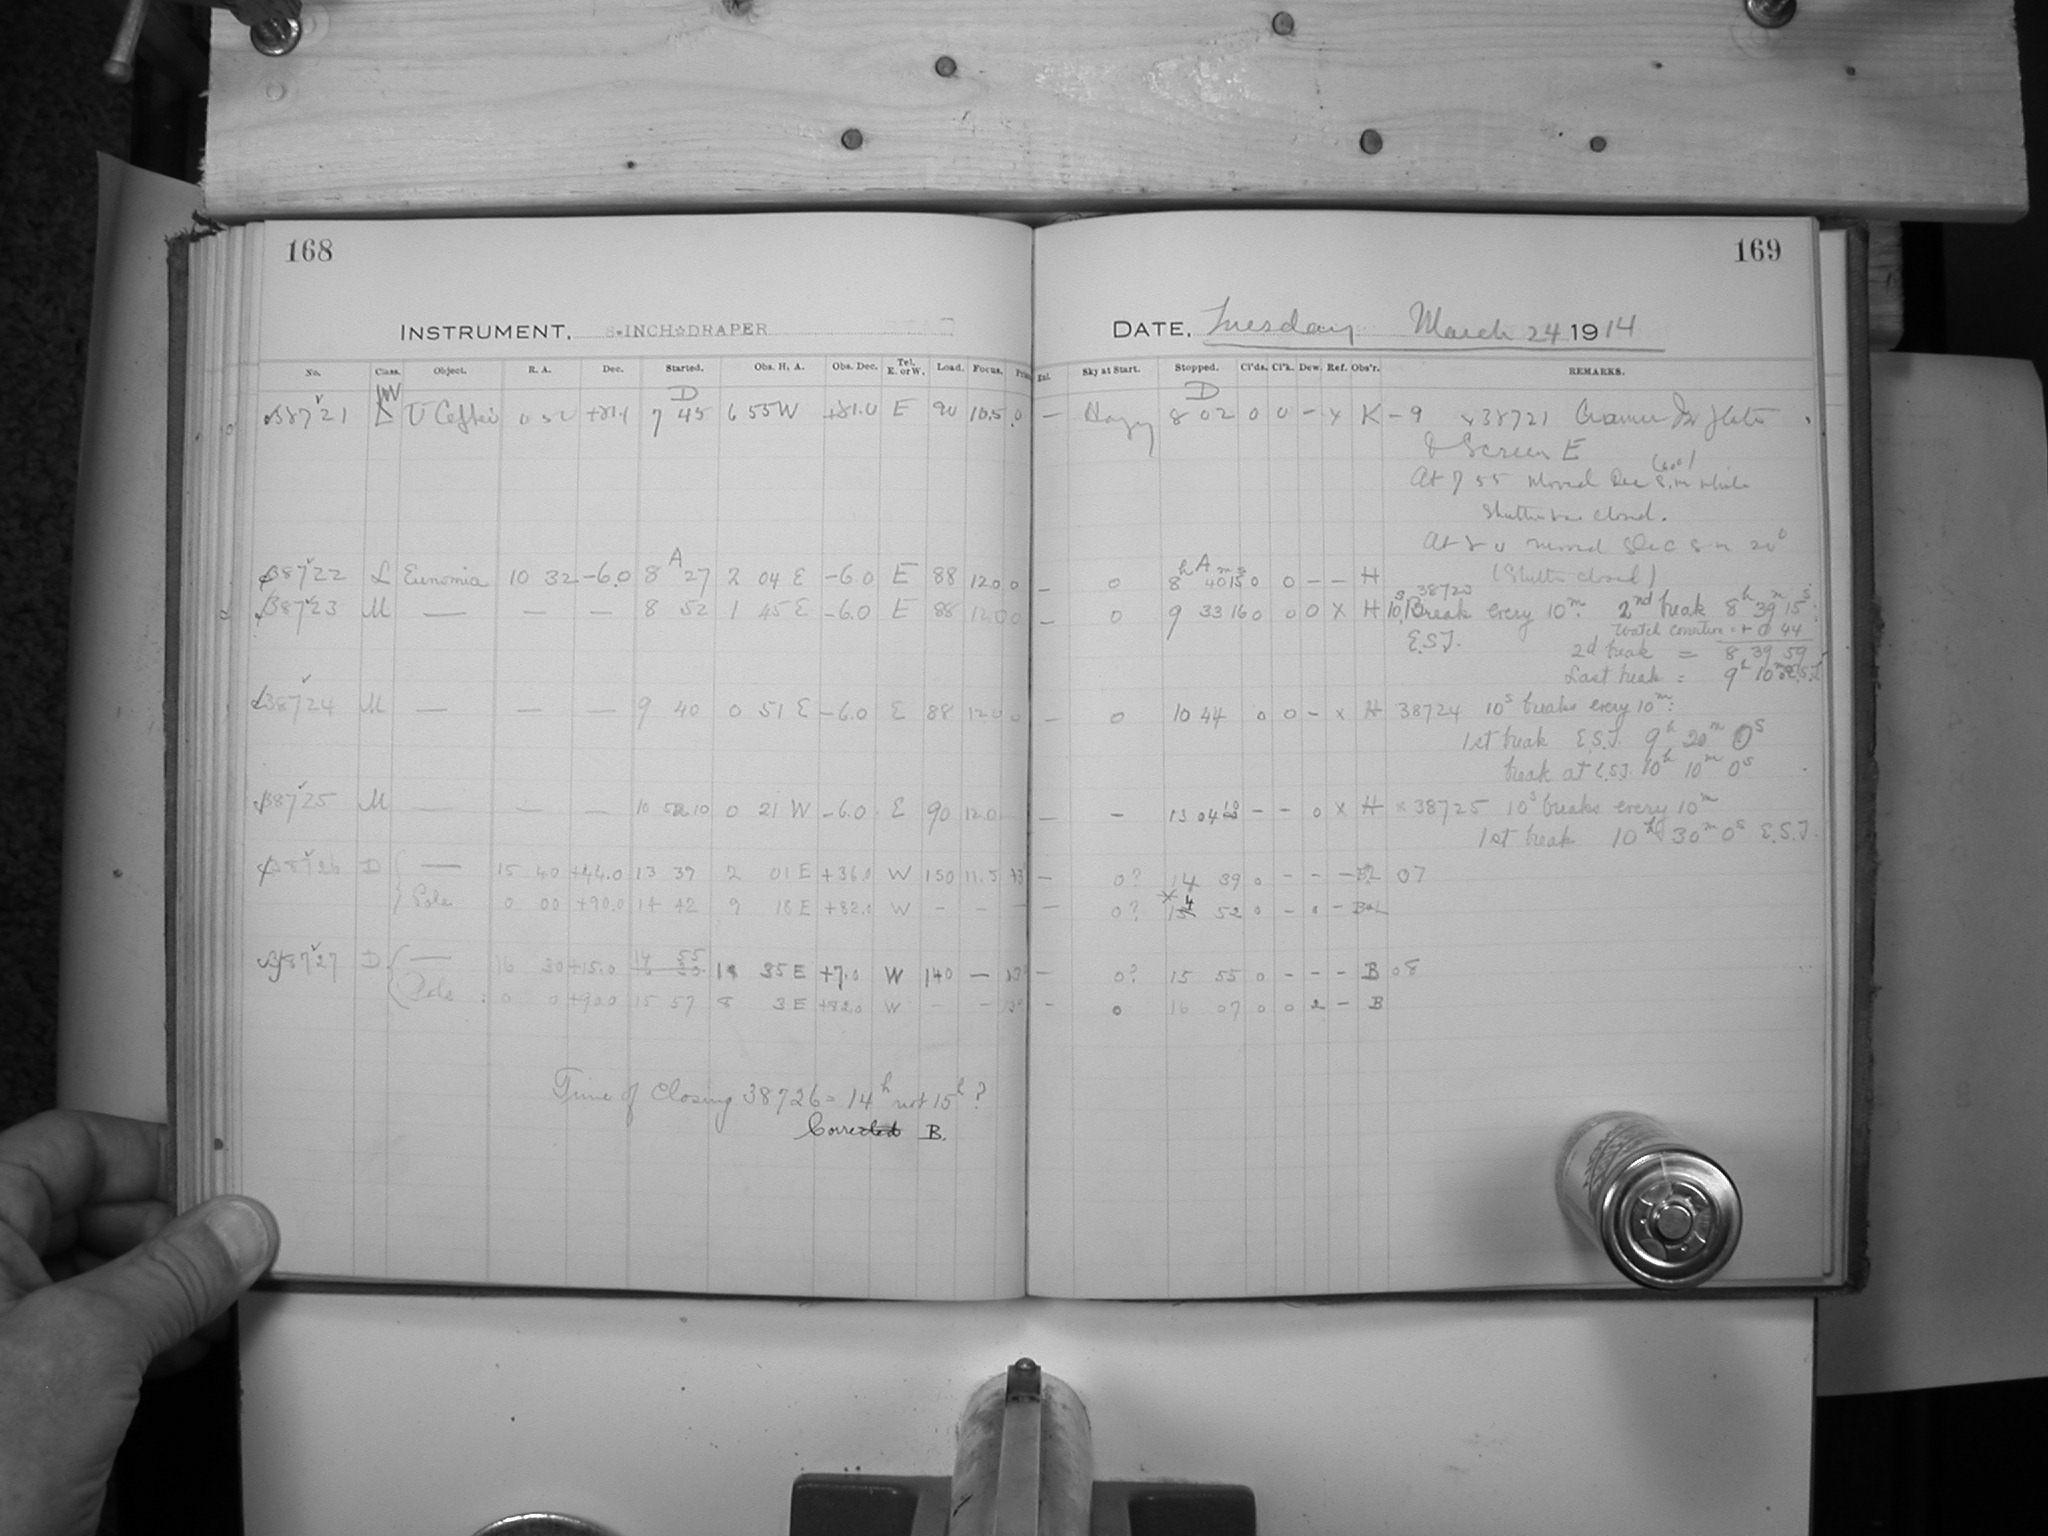 168
INSTRUMENT. 8-INCH☆DRAPER
No. Class. Object. R. A. Dec. Started. Obs. H. A. Obs. Dec. Tel. E. or W. Load. Focus.
D
38721 U Cephei 0 52 +81.4 7 45 6 55 W +81.0 E 90 10.5 0
A
38722 L Eunomia 10 32 -6.0 8 27 2 04 E -6.0 E 88 12.0 0
38723 M — — — 8 52 1 45 E -6.0 E 88 12.0 0
38724 M — — — 9 40 0 51 E -6.0 E 88 12.0 0
38725 M — — — 10 52 10 0 21 W -6.0 E 90 12.0
38726 D — 15 40 +44.0 13 37 2 01 E +36.0 W 150 11.5 13°
Pole 0 00 +90.0 14 42 9 18 E +82.0 W - - -
38727 D — 16 30 +15.0 14 55 1 35 E +7.0 W 140 — 13°
Pole 0 0 +90.0 15 57 8 3 E +82.0 W - - 13°
Time of Closing 38726 = 14h not 15h?
Corrected B.
169
DATE. Tuesday March 24 1914
Ext. Sky at Start. Stopped. Cl'ds. Cl'k. Dew. Ref. Obs'r. REMARKS.
D
— Hazy 8 02 0 0 - x K - 9 x38721 Cramer Plate
& Screen E
At 7 55 moved Dec S.m while
Shutter was closed.
At 8 0 moved Dec S m 20°
(Shutter closed)
h A m s
— 0 8 40 15 0 0 - - H
38723
— 0 9 33 16 0 0 0 x H 10s Break every 10m. 2nd break 8h 39m 15s
E.S.T. Watch correction = + 0 44
2d break = 8 39 59
Last break = 9h 10m 0s E.S.T
— 0 10 44 0 0 - x H 38724 10s breaks every 10m:
1st break E.S.T. 9h 20m 0s
break at E.S.T. 10h 10m 0s
— - 13 04 10 - - 0 x H x 38725 10s breaks every 10m
1st break 10h 30m 0s E.S.T.
— 0? 14 39 0 - - - BL 07
— 0? 14 52 0 - 0 - B&L
— 0? 15 55 0 - - - B 08
- 0 16 07 0 0 2 - B